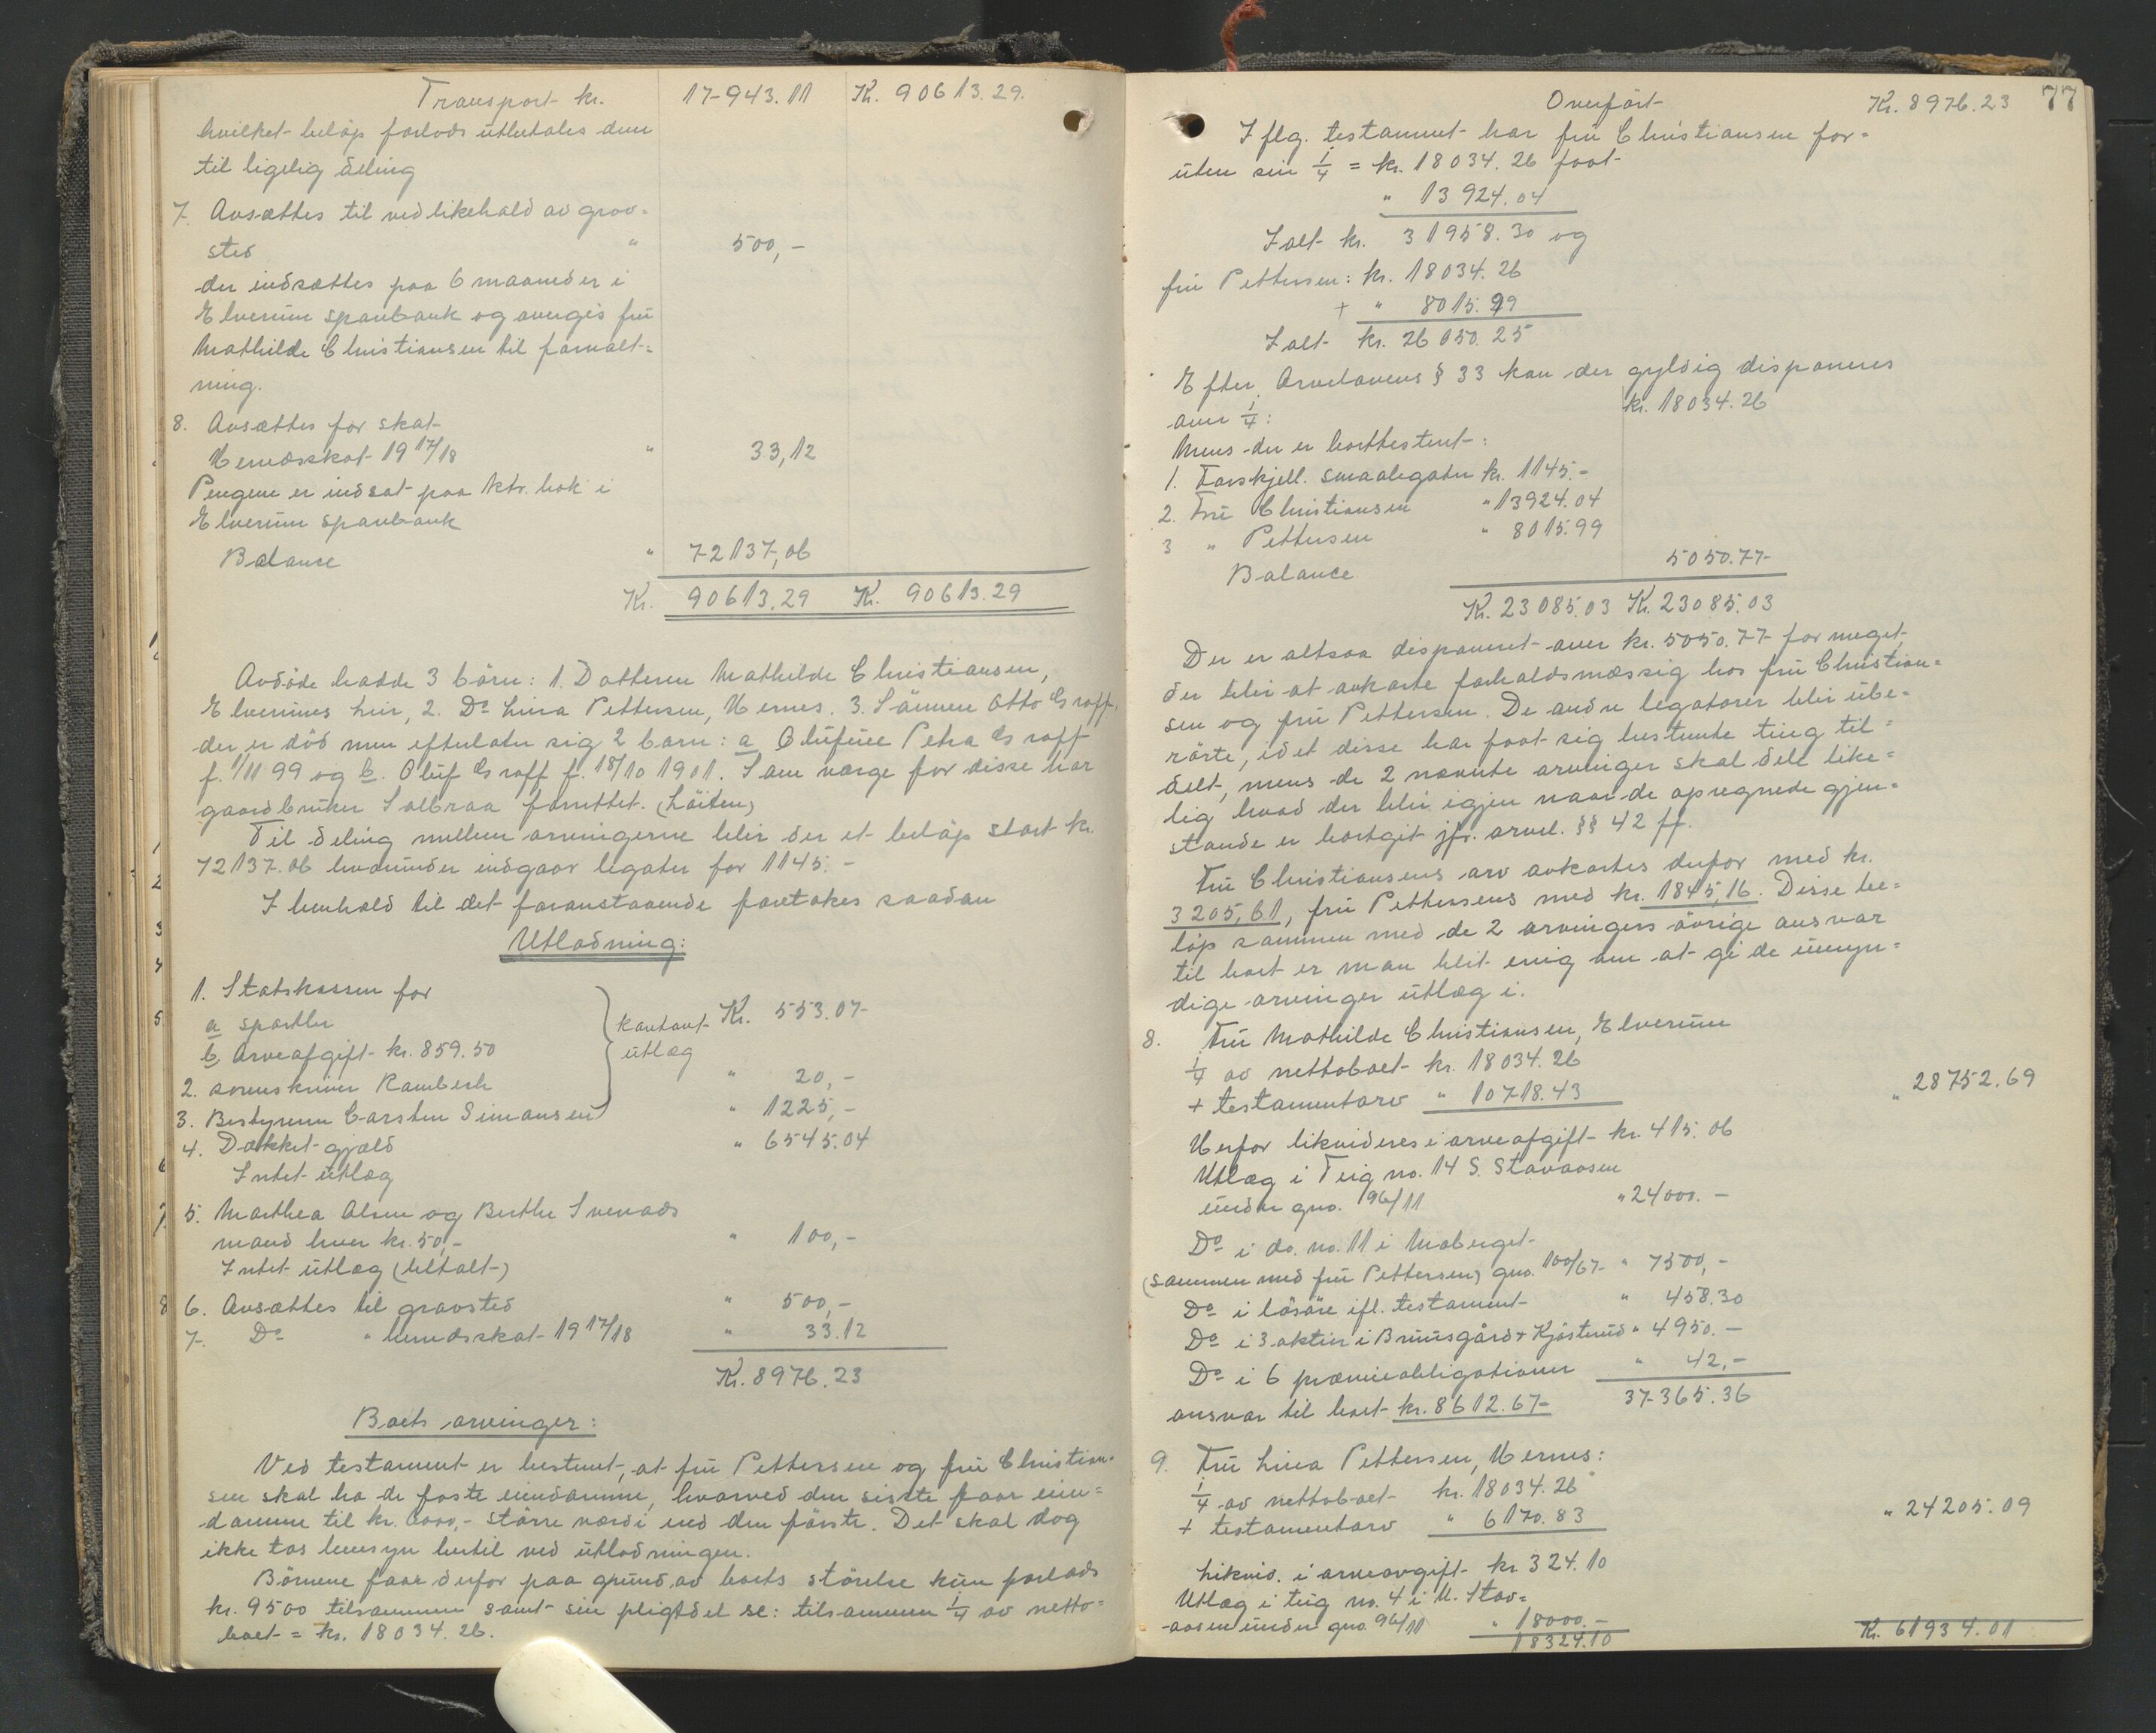 Transport kr. 17943.11 Kr. 90613.29.
hvilket beløp forlods utbetales dem
til ligelig deling
7. Avsættes til vedlikehold av grav-
sted " 500,-
der indsættes paa 6 maaneder i
Elverum sparebank og overgis fru
Mathilde Christiansen til forvalt=
ning.
8. Avsættes for skat
Hernesskat 19 17/18 " 33,12
Pengene er indsat paa ktr. bok i
Elverum sparebank
Balance " 72137,06
Kr. 90613.29 Kr. 90613.29
Avdöde hadde 3 börn: 1. Datteren Mathilde Christiansen,
Elverums lein, 2. Do Lina Pettersen, Hernes. 3. Sönnen Otto Graff,
der er död men efterlater sig 2 barn: a Olufine Petra Graff
f. 1/11 99 og b. Oluf Graff f. 18/10 1901. Som værge for disse har
gaardbruker Solbraa forrettet. (Löiten)
Til deling mellem arvingerne blir der et beløp stort kr.
72137.06 hvorunder indgaar legater for 1145.-
I henhold til det foranstaaende foretakes saadan
Utlodning:
1. Statskassen for
a sportler
b. arveafgift kr. 859.50
kontant utlæg Kr. 553.07
2. sorenskriver Rambech " 20,-
3. Bestyreren Carsten Simonsen " 1225,-
4. Dækket gjæld " 6545.04
Intet utlæg
5. Marthea Olsen og Berthe Svenads
mand hver kr. 50,- " 100,-
Intet utlæg (betalt)
6. Avsættes til gravsted " 500,-
7. Do " herredsskat 19 17/18 " 33.12
Kr. 8976.23
Boets arvinger:
Ved testament er bestemt, at fru Pettersen og fru Christian-
sen skal ha de faste eiendomme, hvorved den sidste faar eien=
domme til kr. 6000,- större værdi end den förste. Det skal dog
ikke tas hensyn hertil ved utlodningen.
Börnene faar derfor paa grund av boets störelse kun forlods
kr. 9500 tilsammen samt sin pligtdel se: tilsammen 1/4 av netto=
boet = kr. 18034.26.
77
Overført Kr. 8976.23
I flg. testament har fru Christiansen for=
uten sin 1/4 = kr. 18034.26 faat
" 13924.04
Ialt kr. 31958.30 og
fru Pettersen: kr. 18034.26
+ " 8015.99
Ialt kr. 26050.25
Efter Arvelovens § 33 kan der gyldig disponeres
over 1/4: kr. 18034.26
Mens der er borttestent:
1. Forskjell. smaalegater kr. 1145.-
2. Fru Christiansen " 13924.04
3 " Pettersen " 8015.99
Balance 5050.77
Kr. 23085.03 Kr. 23085.03
Der er altsaa disponeret over kr. 5050.77 for meget,
der blir at avkorte forholdsmæssig hos fru Christian=
sen og fru Pettersen. De andre legatarer blir ube=
rörte, idet disse har faat sig bestemte ting til=
delt, mens de 2 nævnte arvinger skal dele like=
lig hvad der blir igjen naar de opregnede gjen=
stande er bortgit jfr. arvel. §§ 42 ff.
Fru Christiansens arv avkortes derfor med kr.
3205,61, fru Pettersens med kr. 1845,16. Disse be=
löp sammen med de 2 arvingers övrige ansvar
til boet er man blit enig om at gi de umyn=
dige arvinger utlæg i.
8. Fru Mathilde Christiansen, Elverum
1/4 av nettoboet kr. 18034.26
+ testamentarv " 10718.43 " 28752.69
Herfor likvideres i arveafgift kr. 415.06
Utlæg i Teig no. 14 S. Stavaasen
under gno. 96/11 " 24000.-
Do i do. no. 11 i Moberget
(sammen med fru Pettersen) gno. 100/67 " 7500,-
Do i lösöre ifl. testament " 458.30
Do i 3 aktier i Bruusgård & Kjösterud " 4950.-
Do i 6 præmieobligationer " 42,-
ansvar til boet kr. 8612.67 37365.36
9. Fru Lina Pettersen, Hernes:
1/4 av nettoboet kr. 18034.26
+ testamentarv " 6170.83 " 24205.09
Likvid. i arveavgift kr 324.10
Utlæg i teig no. 4 i N. Stav=
aasen under gno. 96/11 " 18000.-
18324.10 Kr. 61934.01